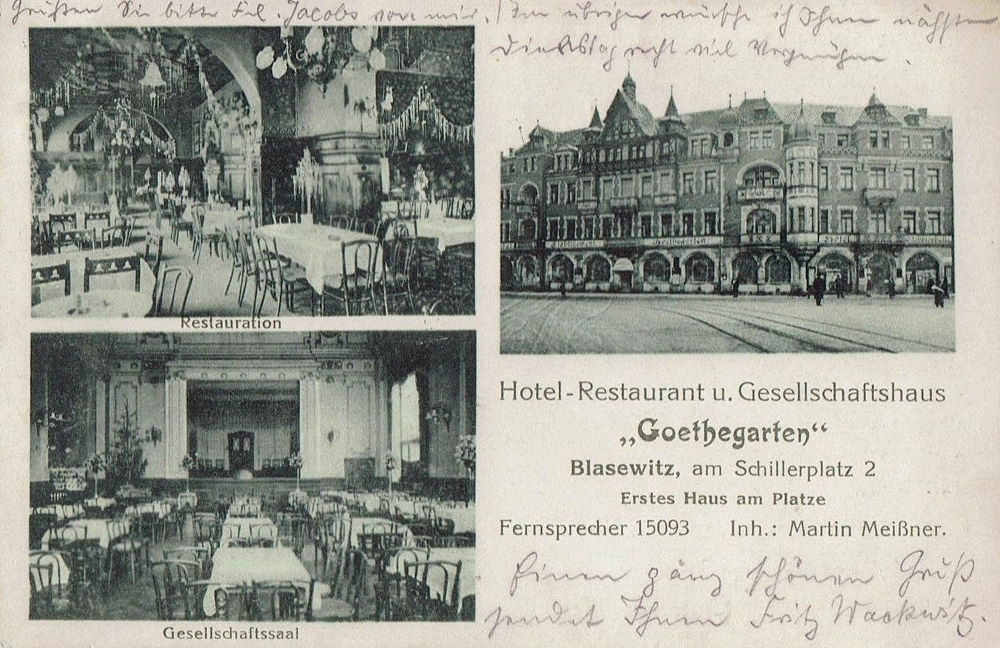 Grüßen Sie bitte Frl. Jacobs von mir.
Im übrigen wünsche ich Ihnen nächsten
Dienstag recht viel Vergnügen.
Restauration
Gesellschaftssaal
Hotel-Restaurant u. Gesellschaftshaus
„Goethegarten“
Blasewitz, am Schillerplatz 2
Erstes Haus am Platze
Fernsprecher 15093 Inh.: Martin Meißner.
Einen ganz schönen Gruß
sendet Ihnen Fritz Wackwitz.